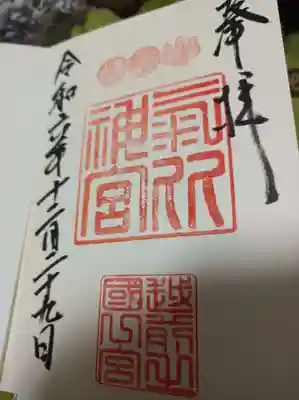 奉拝
氣比
神宮
越前之
國一宮
令和六年十二月二十九日